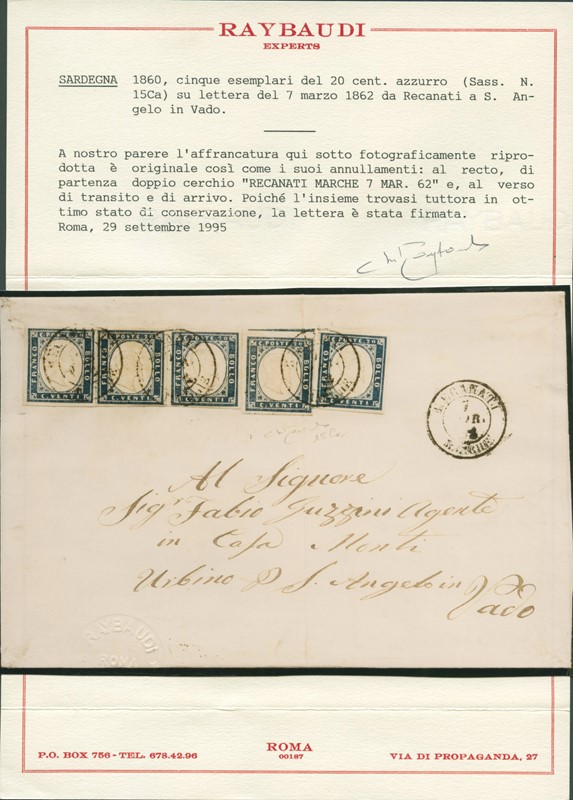 RAYBAUDI
EXPERTS
SARDEGNA 1860, cinque esemplari del 20 cent. azzurro (Sass. N.
15Ca) su lettera del 7 marzo 1862 da Recanati a S. An-
gelo in Vado.
A nostro parere l'affrancatura qui sotto fotograficamente ripro-
dotta è originale così come i suoi annullamenti: al recto, di
partenza doppio cerchio "RECANATI MARCHE 7 MAR. 62" e, al verso
di transito e di arrivo. Poichè l'insieme trovasi tuttora in ot-
timo stato di conservazione, la lettera è stata firmata.
Roma, 29 settembre 1995
C. POSTE 20 C. POSTE 20 C. POSTE 20 C. POSTE 20 C. POSTE 20
FRANCO BOLLO FRANCO BOLLO FRANCO BOLLO FRANCO BOLLO FRANCO BOLLO
C. VENTI C. VENTI C. VENTI C. VENTI C. VENTI
RECANATI
7
MARCHE
Al Signore
Sigr Fabio Guzzini Agente
in Casa Monti
Urbino P S. Angelo in
Vado
RAYBAUDI
ROMA
P.O. BOX 756 - TEL. 678.42.96
ROMA
00187
VIA DI PROPAGANDA, 27